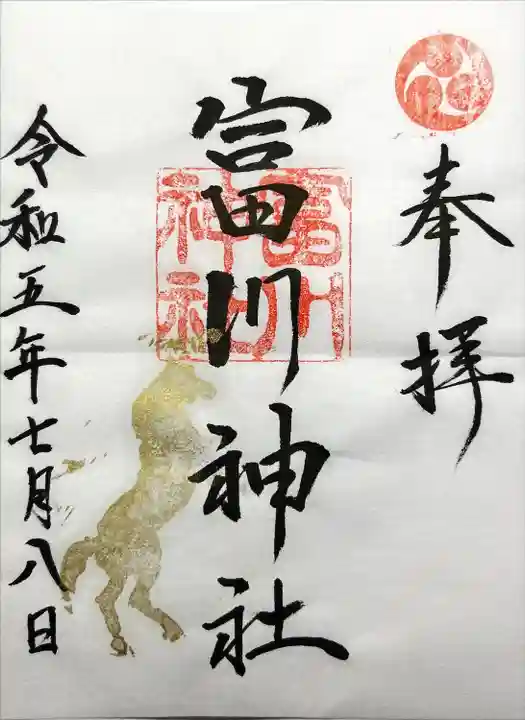 奉拝
富川神社
富川神社
令和五年七月八日